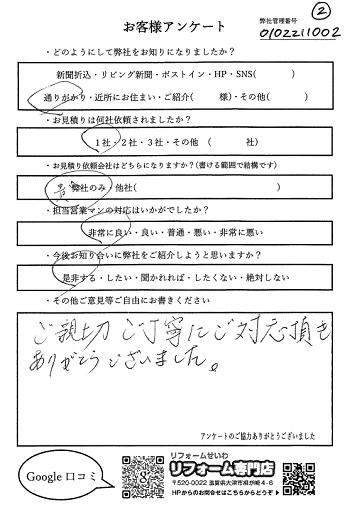 お客様アンケート
弊社管理番号 ②
0102211002
・どのようにして弊社をお知りになりましたか？
新聞折込・リビング新聞・ポストイン・HP・SNS(　　　)
通りがかり・近所にお住まい・ご紹介(　　　様)・その他(　　　)
・お見積りは何社依頼されましたか？
1社・2社・3社・その他　(　　　社)
・お見積り依頼会社はどちらになりますか？(書ける範囲で結構です)
弊社のみ・他社(　　　)
・担当営業マンの対応はいかがでしたか？
非常に良い・良い・普通・悪い・非常に悪い
・今後お知り合いに弊社をご紹介しようと思いますか？
是非する・したい・聞かれれば・したくない・絶対しない
・その他ご意見等ご自由にお書きください
ご親切ご丁寧にご対応頂き
ありがとうございました。
アンケートのご協力ありがとうございました
Google 口コミ
リフォームせいわ
リフォーム専門店
〒520-0022 滋賀県大津市柳が崎4-6
HPからのお問合せはこちらからどうぞ